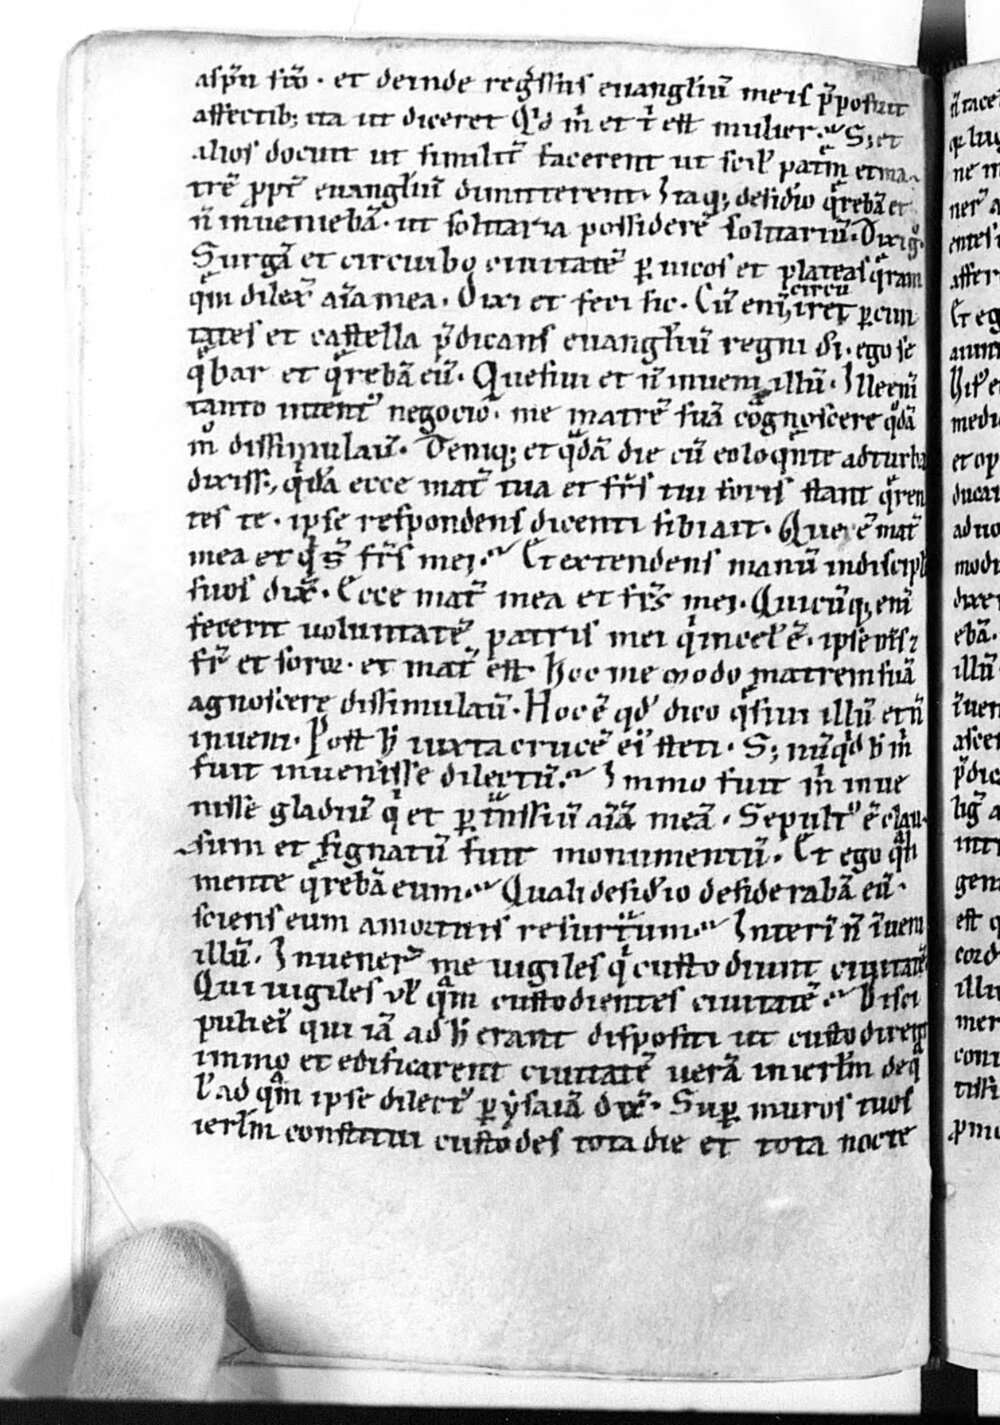 aspũ sčo · et deinde reg̃ssus euangłiũ meis p̃posuit
affectib; ita ut diceret Qͥd m̃ et t̃ est mulier. S; et
alios docuit ut similit̃ facerent ut scilꝫ patrẽ et ma-
trẽ ꝓpt̃ euangłiũ dimitterent. Itaq; desidꝰio q̃rebã et
ñ inueniebã. ut solitaria possiderẽ solitariũ. Dixi gͦ.
Surgã et circuibo ciuitatẽ ꝑ uicos et plateas q̃ram
qͣm dilex̃ aĩa mea. Dixi et feci sic. Cũ eni circũiret ꝑ ciui
tates et castella p̃dicans euangłiũ regni dı̃. ego se
qͣbar et q̃rebã eũ. Quesiui et ñ inueni illũ. Ille eni
tanto intentꝰ negocio. me matrẽ suã cognoscere qͦdã
mͦ dissimulauͭ. Deniq; et qͣdã die cũ eo loqͣnte ad turbã
dixiss; qͥdã ecce mat̃ tua et fr̃s tui foris stant q̃ren
tes te. ipse respondens dicenti sibi ait. Que ẽ mat̃
mea et qͥ sͭ fr̃s mei. Et extendens manũ in discipłos
suos dix̃. Ecce mat̃ mea et fr̃s mei. Quicũq; eni
fecerit uoluntatẽ patris mei qͥ in cel̃ ẽ. ipse mͥs
fr̃ et soror. et mat̃ est. Hoc me modo matrem suã
agnoscere dissimulauͭ. Hoc ẽ qdͦ dico q̃siui illũ et ñ
inueni. Post h̃ iuxta crucẽ eiꝰ steti. S; nũqͥd tͨ m̃
fuit inuenisse dilectũ. Immo fuit m̃ inue
nisse gladiũ qͥ et ꝑtͣnsiuͭ aĩã meã. Sepultꝰ ẽ clau-
sum et signatũ fuit monumentũ. Et ego qͣli
mente q̃rebã eum. Quali desidꝰio desiderabã eũ.
sciens eum a mortuis resurrͨturum. Interĩ ñ ĩueni
illũ. Inuenerͭ me uigiles qͥ custodiunt ciuitatẽ
Qui uigiles uł qͣm custodientes ciuitatẽ. Disci
puli eiꝰ qui iã ad h̃ erant dispositi ut custodirent
immo et edificarent ciuitatẽ uerã ierłm de qͣ
ł ad qͣm ipse dilectꝰ ꝑ ysaiã dix̃. Suꝑ muros tuos
ierłm constitui custodes tota die et tota nocte